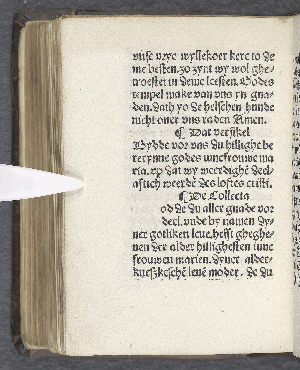 vnse vrye wyllekoer kere to de
me besten. zo zynt wy wol ghe
troesten in dewe leesten. Godes
tempel make van vns yn gna
den. dath yo de helschen hunde
nicht over vns raden Amen.
¶ Dat versikel
Bydde vor vns du hillighe be
rerynne godes iuncfrouwe ma
ria. vp dat wy werdighe deel
aftich werdē des loftes cristi.
¶ De Collecta
od de du aller gnade vor
deel. vnde by namen dy
ner gotliken leue. hefft gheghe
nen der alder hillighesten iunc
frouwen marien. dyner alder
kueschē leuē moder. de du